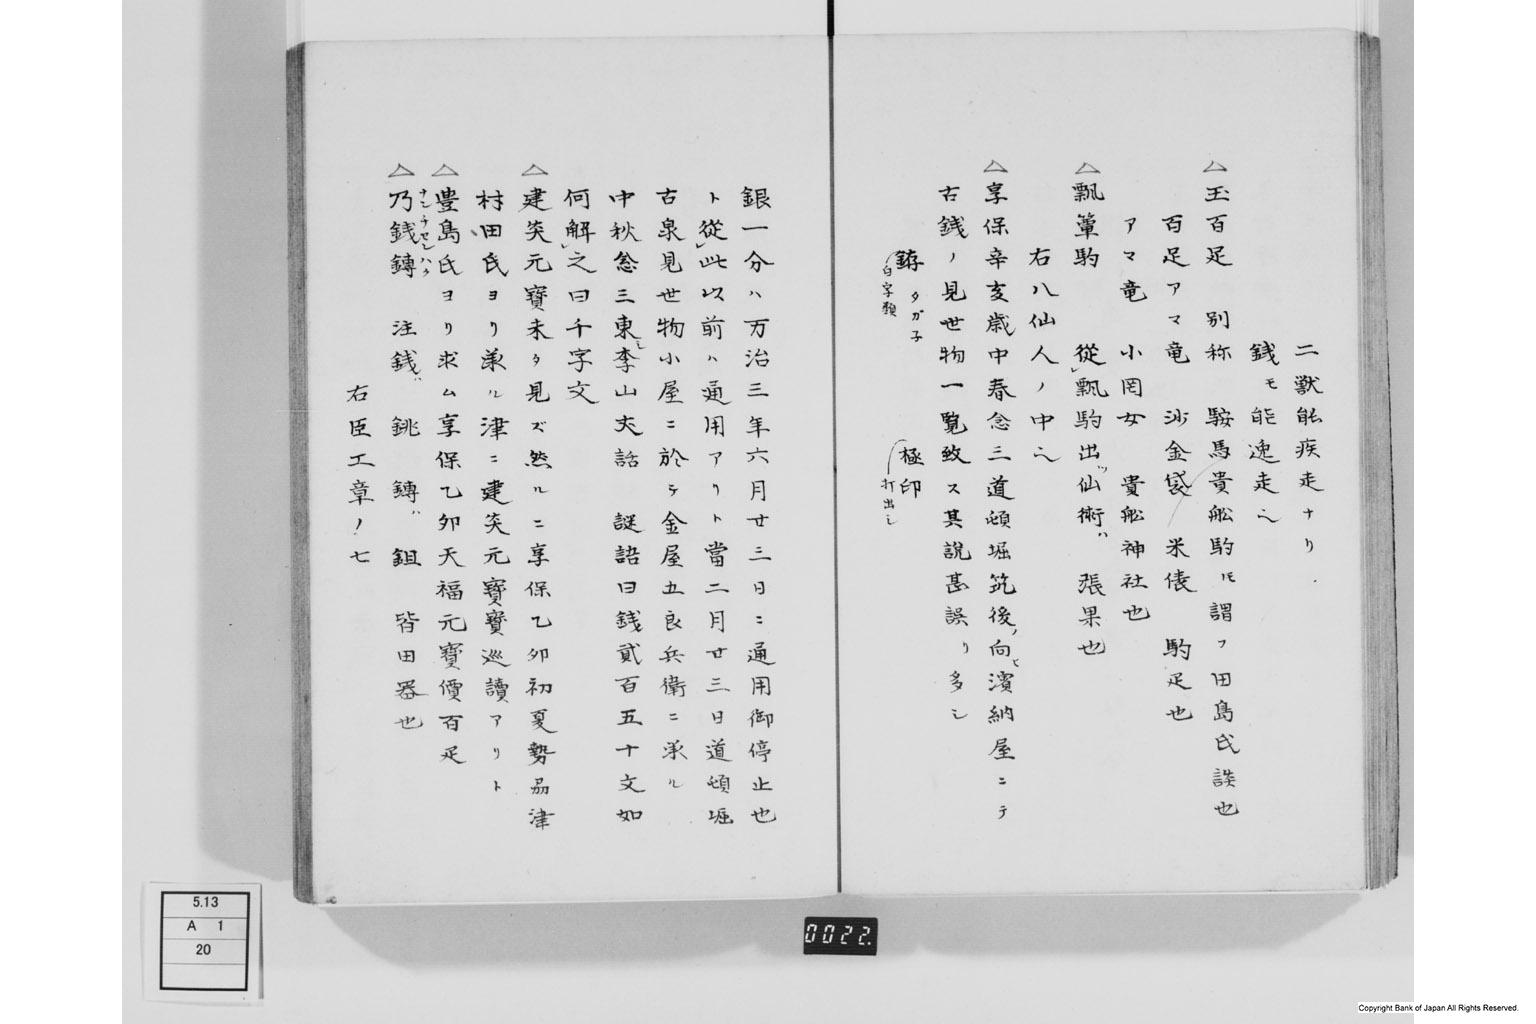 二獣能疾走ナリ
銭モ能逸走ヘ
△玉百足 別称 鞍馬貴舩駒ﾄﾓ謂フ田島氏談也
百足アマ竜 沙金袋 米俵 駒足也
アマ竜 小罔女 貴舩神社也
△瓢簞駒 從瓢駒出ツ仙術ハ 張果也
右八仙人ノ中ヘ
△享保辛亥歳中春念三道頓堀筑後ノ向ヒ濱納屋ニテ
古銭ノ見世物一覧致ス其説甚誤リ多シ
タガ子 極印
白字類 打出シ
銀一分ハ万治三年六月廿三日ニ通用御停止也
ト從此以前ハ通用アリト當二月廿三日道頓堀
古泉見世物小屋ニ於テ金屋五良兵衛ニ承ル
中秋念三東李山夫話 謎語曰銭貳百五十文如
何解之曰千字文
△建炎元寶未タ見ズ然ルニ享保乙卯初夏勢刕津
村田氏ヨリ承ル津ニ建炎元寶寶巡讀アリト
△豊島氏ヨリ求ム享保乙卯天福元寶價百疋
△乃銭鎛 注銭ハ 銚 鎛ハ 鉏 皆田器也
ナンチセンハク
右臣工章ノ七
5.13
A 1
20
0022.
Copyright Bank of Japan All Rights Reserved.